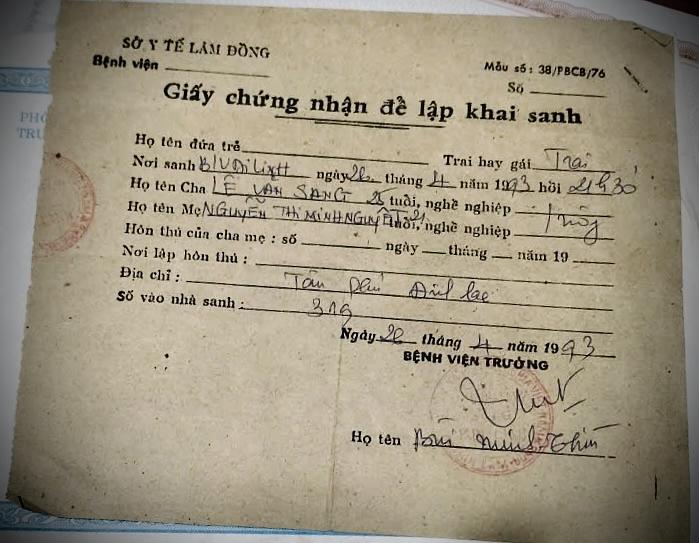 SỞ Y TẾ LÂM ĐỒNG
Bệnh viện
Mẫu số : 38/PBCB/76
Số
Giấy chứng nhận để lập khai sanh
Họ tên đứa trẻ Trai hay gái Trai
Nơi sanh B/V Di Linh ngày 26 tháng 4 năm 1993 hồi 21h30
Họ tên Cha LÊ VĂN SANG 25 tuổi, nghề nghiệp
Họ tên Mẹ NGUYỄN THỊ MINH NGUYỆT 21 tuổi, nghề nghiệp
Hôn thú của cha mẹ : số ngày tháng năm 19
Nơi lập hôn thú :
Địa chỉ : Tân Phú Đinh Lạc
Số vào nhà sanh : 319
Ngày 26 tháng 4 năm 1993
BỆNH VIỆN TRƯỞNG
Họ tên Bùi Minh